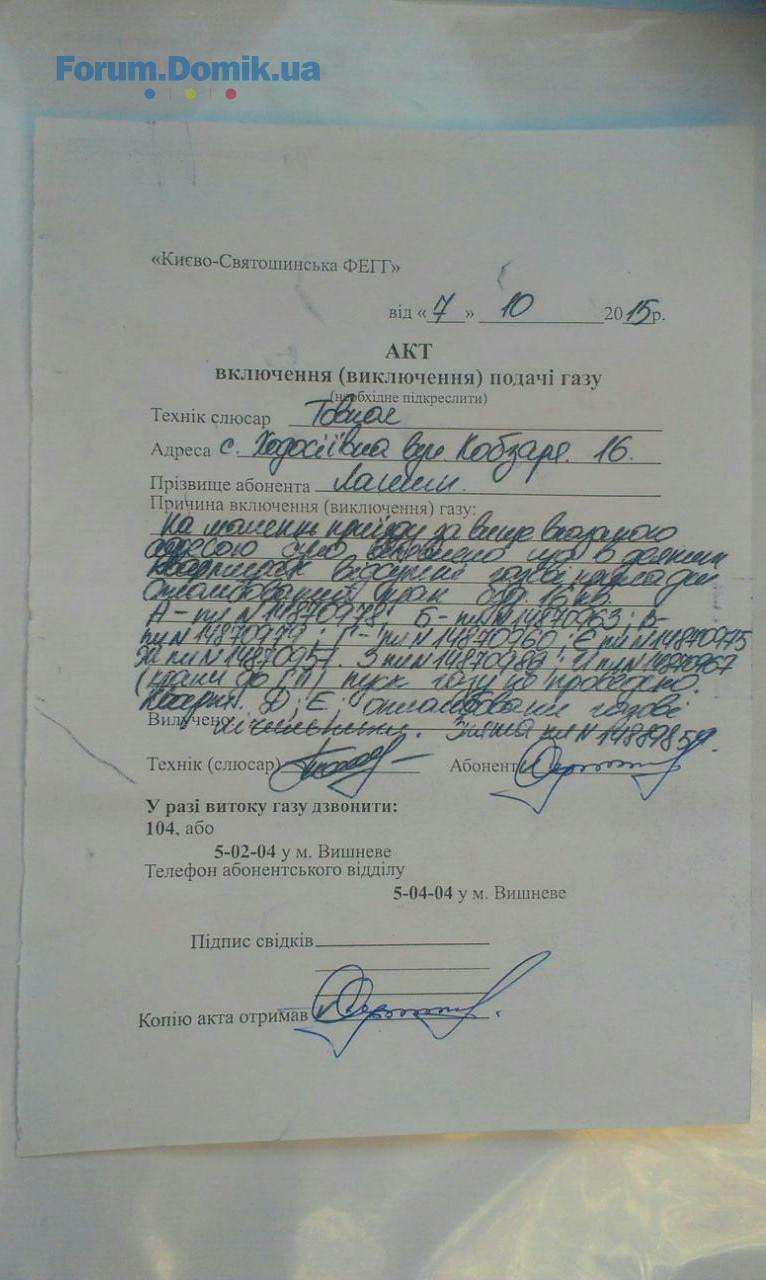 Forum.Domik.ua
«Києво-Святошинська ФЕГГ»
від «7» 10 2015р.
АКТ
включення (виключення) подачі газу
(необхідне підкреслити)
Технік слюсар
Адреса с. Ходосіївка вул. Кобзаря. 16.
Прізвище абонента
Причина включення (виключення) газу:
На момент приїзду за вище вказаною
адресою було виявлено що в деяких
квартирах відсутні газові прилади
опломбований кран буд. 16 кв.
А - пл N 14870978; Б - пл N 14870963; В -
пл N 14870979; Г - пл N 14870960; Є пл N 14870975
Ж пл N 14870957. З пл N 14870983; И пл N 14870967
(крани до ГП) пуск газу не проведено.
Кварт. Д; Е; опломбовані газові
Вилучено: лічильники. Знята пл N 14889859.
Технік (слюсар) Абонент
У разі витоку газу дзвонити:
104, або
5-02-04 у м. Вишневе
Телефон абонентського відділу
5-04-04 у м. Вишневе
Підпис свідків
Копію акта отримав